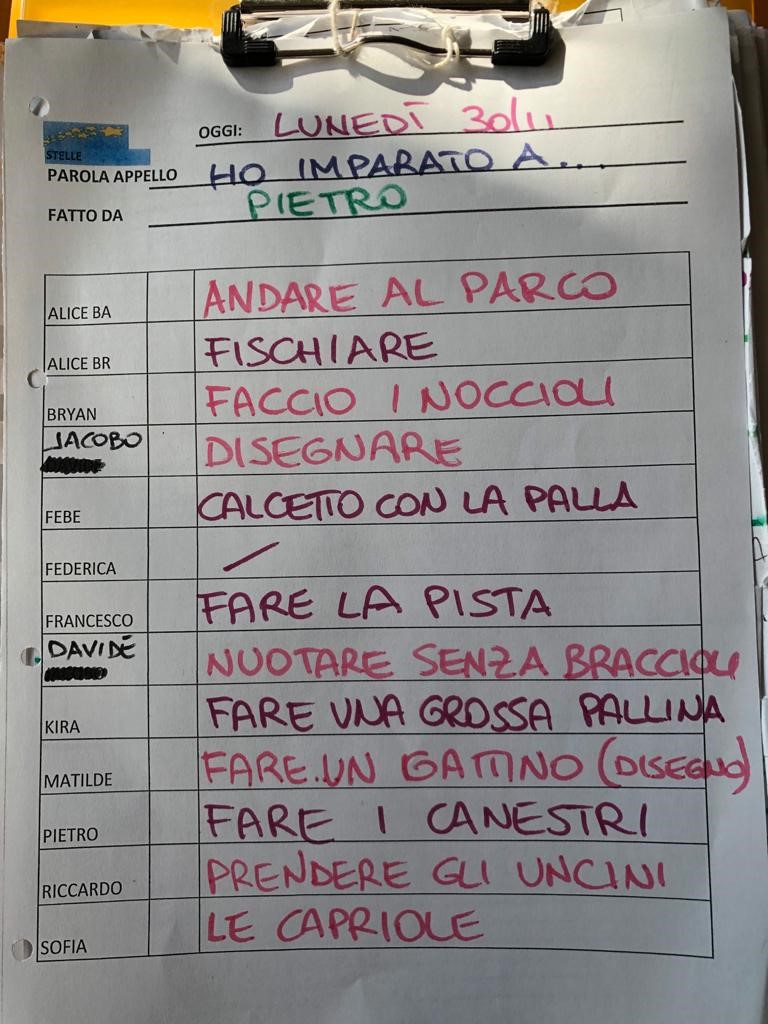 OGGI: LUNEDÌ 30/11
STELLE
PAROLA APPELLO HO IMPARATO A...
FATTO DA PIETRO
ALICE BA ANDARE AL PARCO
ALICE BR FISCHIARE
BRYAN FACCIO I NOCCIOLI
JACOBO DISEGNARE
FEBE CALCETTO CON LA PALLA
FEDERICA /
FRANCESCO FARE LA PISTA
DAVIDE NUOTARE SENZA BRACCIOLI
KIRA FARE UNA GROSSA PALLINA
MATILDE FARE UN GATTINO (DISEGNO)
PIETRO FARE I CANESTRI
RICCARDO PRENDERE GLI UNCINI
SOFIA LE CAPRIOLE